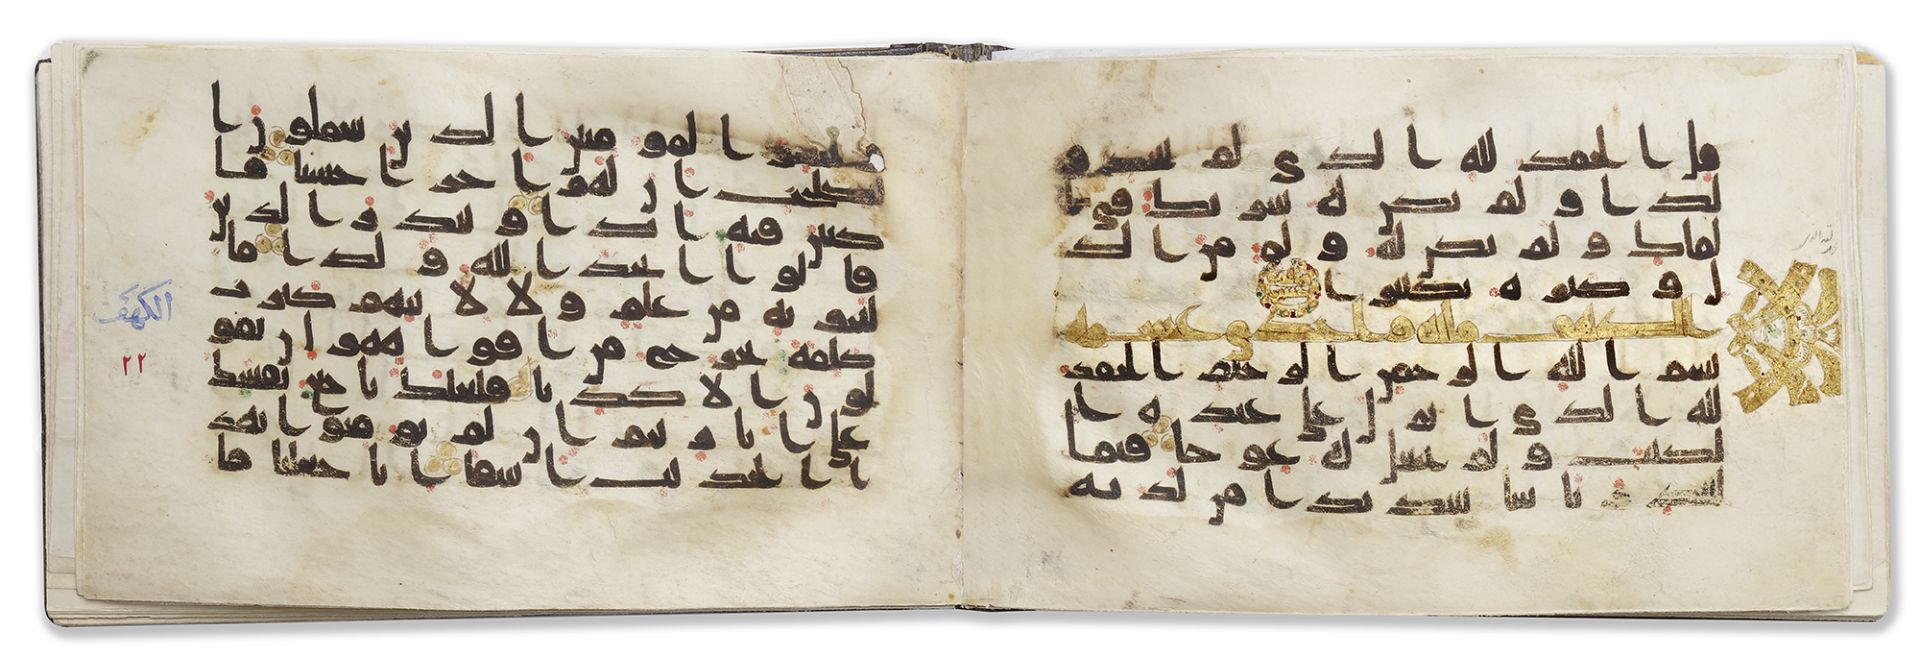 قل الحمد لله الذى لم يتخذ و
لدا و لم يكن له شريك فى ا
لملك و لم يكن له ولى من الذ
ل و كبره تكبيرا
بسم الله الرحمن الرحيم الحمد
لله الذى انزل على عبده ا
لكتب و لم يجعل له عوجا قيما
لينذر باسا شديدا من لدنه
و يبشر المومنين الذين يعملون ا
لصلحت ان لهم اجرا حسنا ما
كثين فيه ابدا و ينذر الذين
قالوا اتخذ الله ولدا ما
لهم به من علم و لا لابائهم كبرت
كلمة تخرج من افوههم ان يقو
لون الا كذبا فلعلك باخع نفسك
على اثرهم ان لم يومنوا بهذ
ا الحديث اسفا انا جعلنا ما
الكهف
٢٢